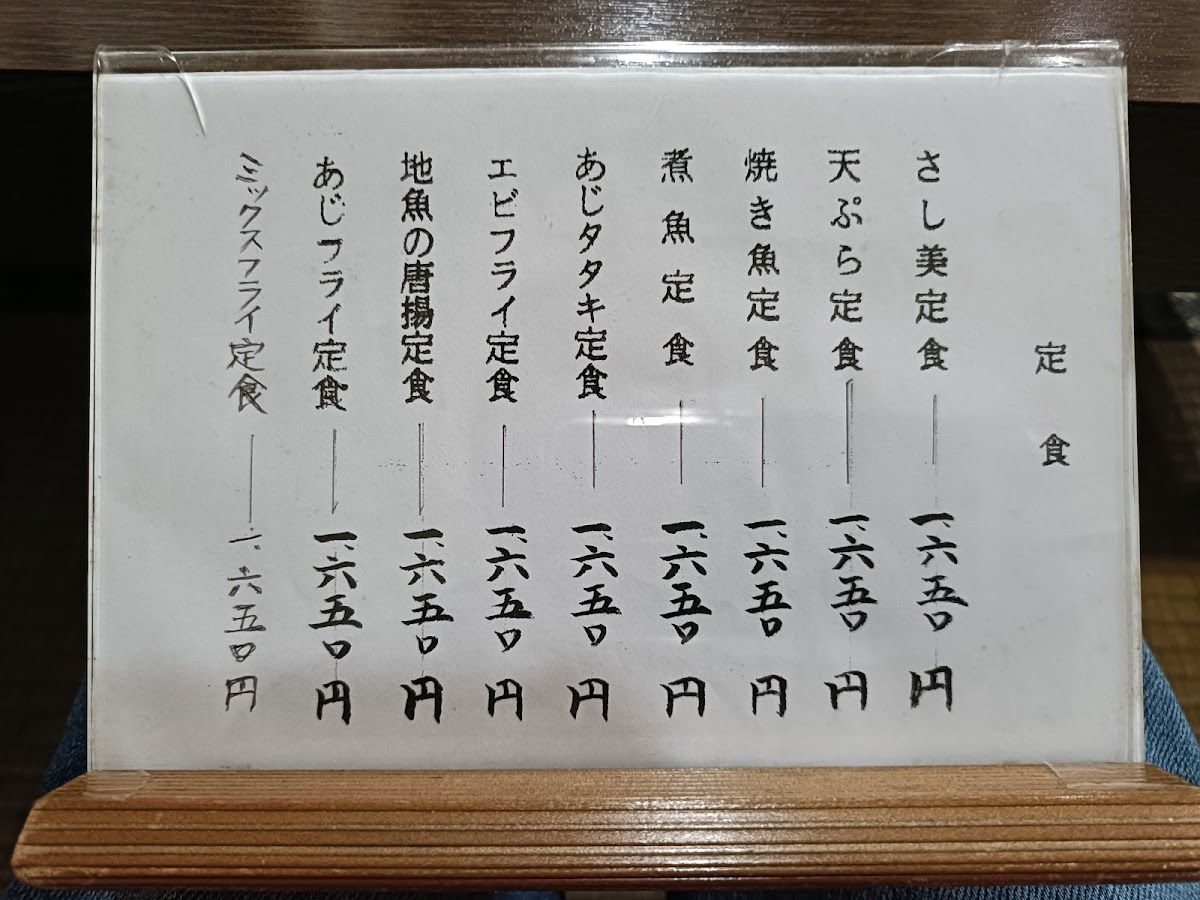 定食
さし美定食 一、六五〇円
天ぷら定食 一、六五〇円
焼き魚定食 一、六五〇円
煮魚定食 一、六五〇円
あじタタキ定食 一、六五〇円
エビフライ定食 一、六五〇円
地魚の唐揚定食 一、六五〇円
あじフライ定食 一、六五〇円
ミックスフライ定食 一、六五〇円